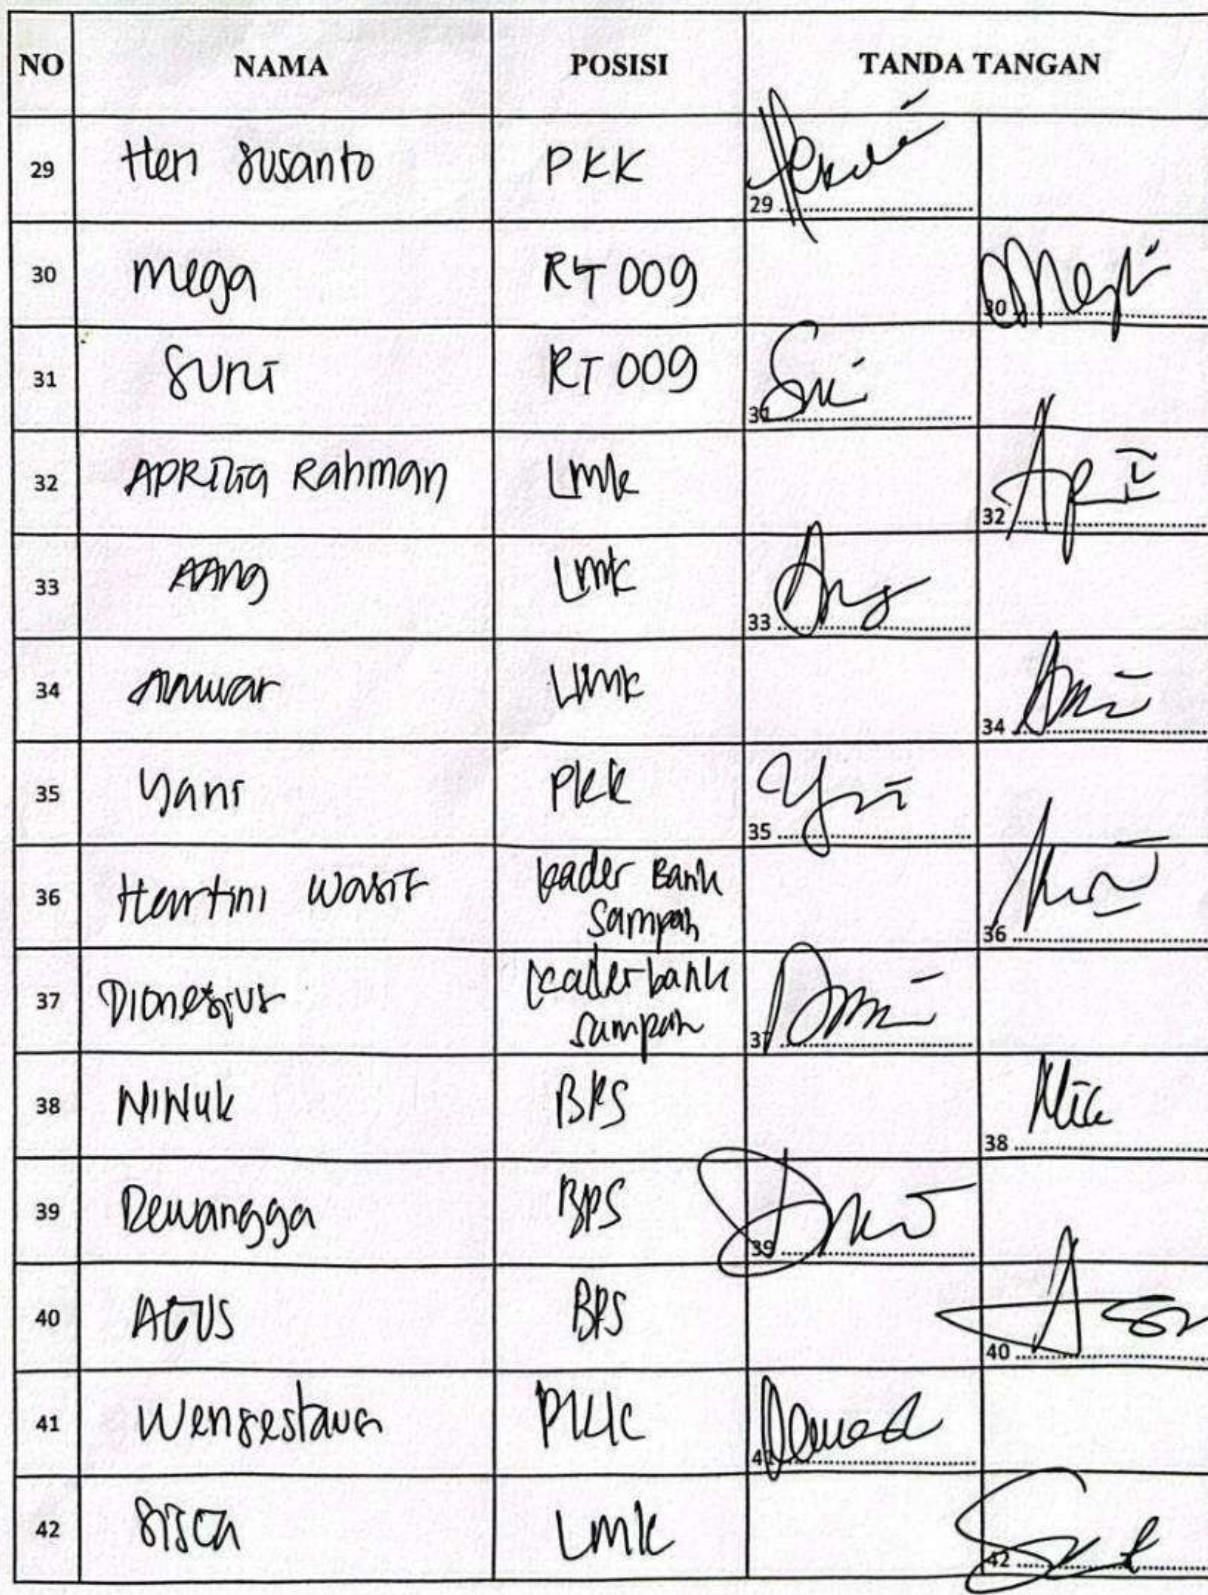 NO NAMA POSISI TANDA TANGAN
29 Heri Susanto PKK 29
30 Mega RT 009 30
31 Suri RT 009 31
32 Aprilia Rahman Lmk 32
33 AAng Lmk 33
34 Anuwar Lmk 34
35 Yani PKK 35
36 Hartini Wasit kader Bank
sampah 36
37 Dionesius kader bank
sampah 37
38 NiNuk BPS 38
39 Dewangga BPS 39
40 AGUS BPS 40
41 PKK 41
42 Sisca Lmk 42